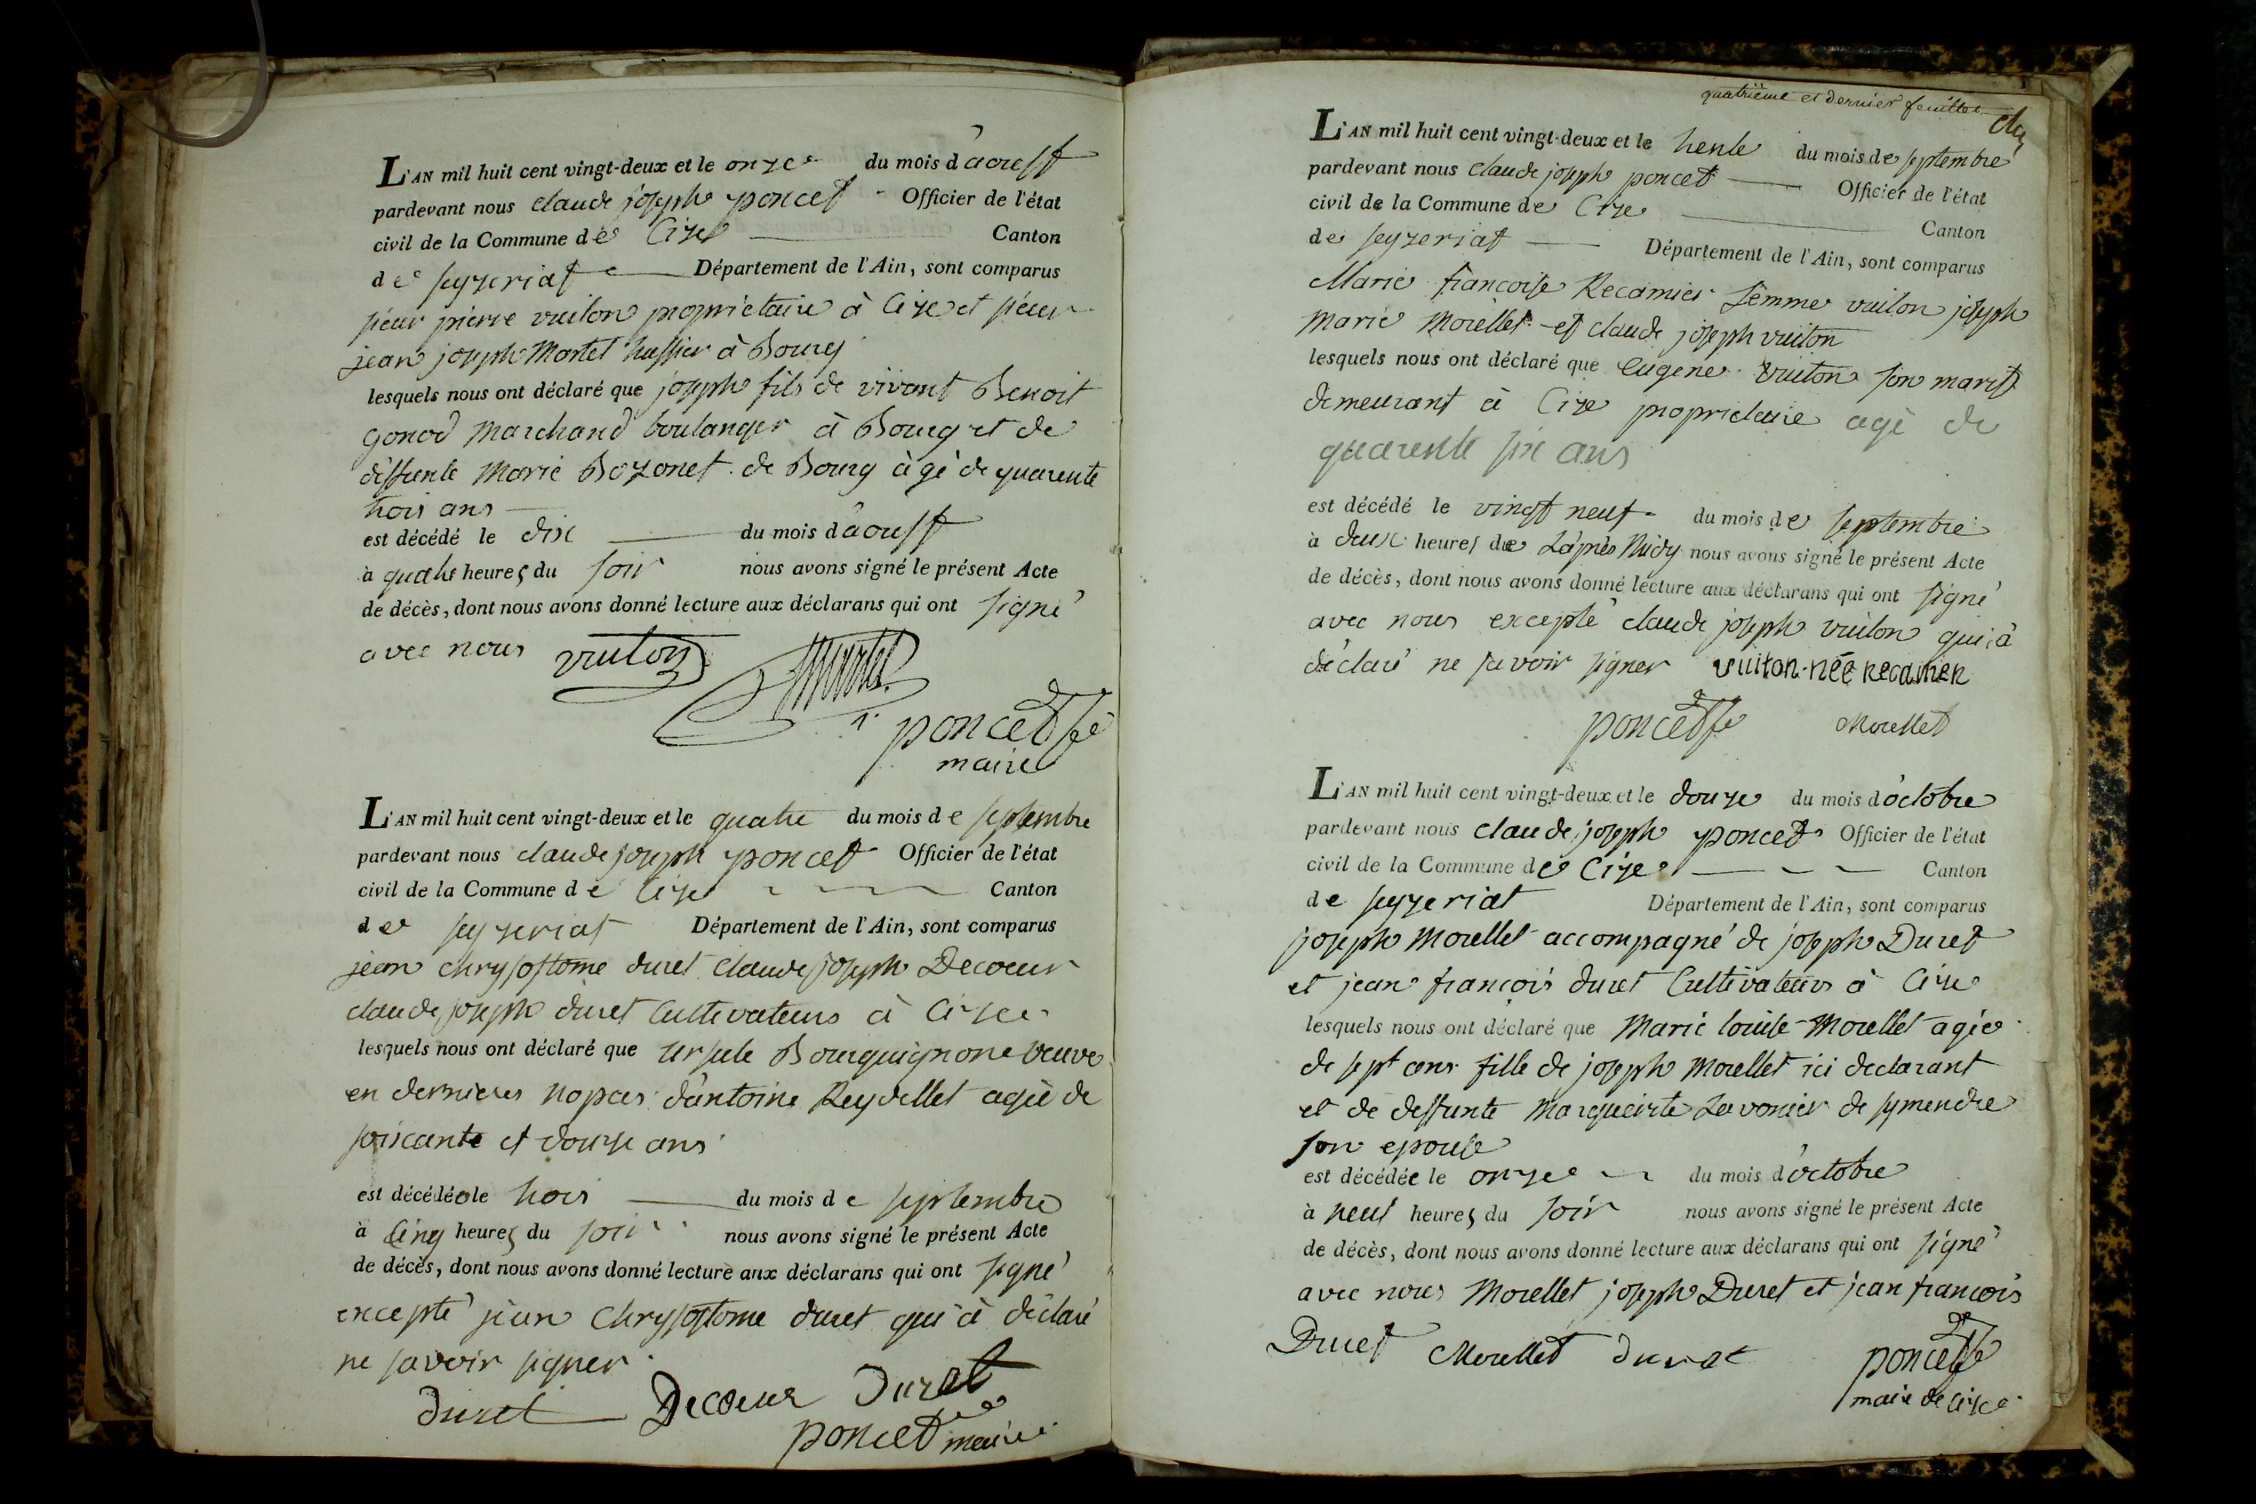 L'AN mil huit cent vingt-deux et le onze du mois d'aoust
pardevant nous claude joseph poncet Officier de l'état
civil de la Commune de Cize Canton
de seyzeriat Département de l'Ain, sont comparus
sieur pierre vuiton propriétaire à Cize et sieur
jean joseph Martel hussier à Bourg
lesquels nous ont déclaré que joseph fils de vivant Benoit
gonod Marchand boulanger à Bourg et de
deffunte Marie Bozonet de Bourg àgé de quarente
trois ans
est décédé le dix du mois d'aoust
à quatre heures du soir nous avons signé le présent Acte
de décès, dont nous avons donné lecture aux déclarans qui ont signé
avec nous vuiton Martel
poncet
maire
L'AN mil huit cent vingt-deux et le quatre du mois de septembre
pardevant nous claude joseph poncet Officier de l'état
civil de la Commune de Cize Canton
de seyzeriat Département de l'Ain, sont comparus
jean chrysostome duret claude joseph Decoeur
claude joseph duret Cultivateurs à Cize
lesquels nous ont déclaré que ursule Bourguignone veuve
en dernieres nopces d'antoine Reydellet agée de
soixante et douze ans
est décédée le trois du mois de septembre
à Cinq heures du soir nous avons signé le présent Acte
de décès, dont nous avons donné lecture aux déclarans qui ont signé
excepté jean Chrysostome duret qui à déclaré
ne savoir signer
duret Decoeur Duret
poncet maire
quatrième et dernier feuillet
L'AN mil huit cent vingt-deux et le trente du mois de septembre
pardevant nous claude joseph poncet Officier de l'état
civil de la Commune de Cize Canton
de seyzeriat Département de l'Ain, sont comparus
Marie françoise Recamier femme vuiton joseph
Marie Morellet et claude joseph vuiton
lesquels nous ont déclaré que eugene vuiton son marit
demeurant à Cize proprietaire agé de
quarente six ans
est décédé le vingt neuf du mois de septembre
à deux heures de L'après Midy nous avons signé le présent Acte
de décès, dont nous avons donné lecture aux déclarans qui ont signé
avec nous excepté claude joseph vuiton qui à
déclaré ne savoir signer vuiton née Recamier
poncet Morellet
L'AN mil huit cent vingt-deux et le douze du mois d'octobre
pardevant nous claude joseph poncet Officier de l'état
civil de la Commune de Cize Canton
de seyzeriat Département de l'Ain, sont comparus
joseph Morellet accompagné de joseph Duret
et jean françois duret Cultivateurs à Cize
lesquels nous ont déclaré que Marie louise Morellet agée
de sept ans fille de joseph Morellet ici declarant
et de deffunte Margueirte Lavonier de symendre
son epouse
est décédée le onze du mois d'octobre
à neuf heures du soir nous avons signé le présent Acte
de décès, dont nous avons donné lecture aux déclarans qui ont signé
avec nous Morellet joseph Duret et jean françois
Duret Morellet duret poncet
maire de Cize